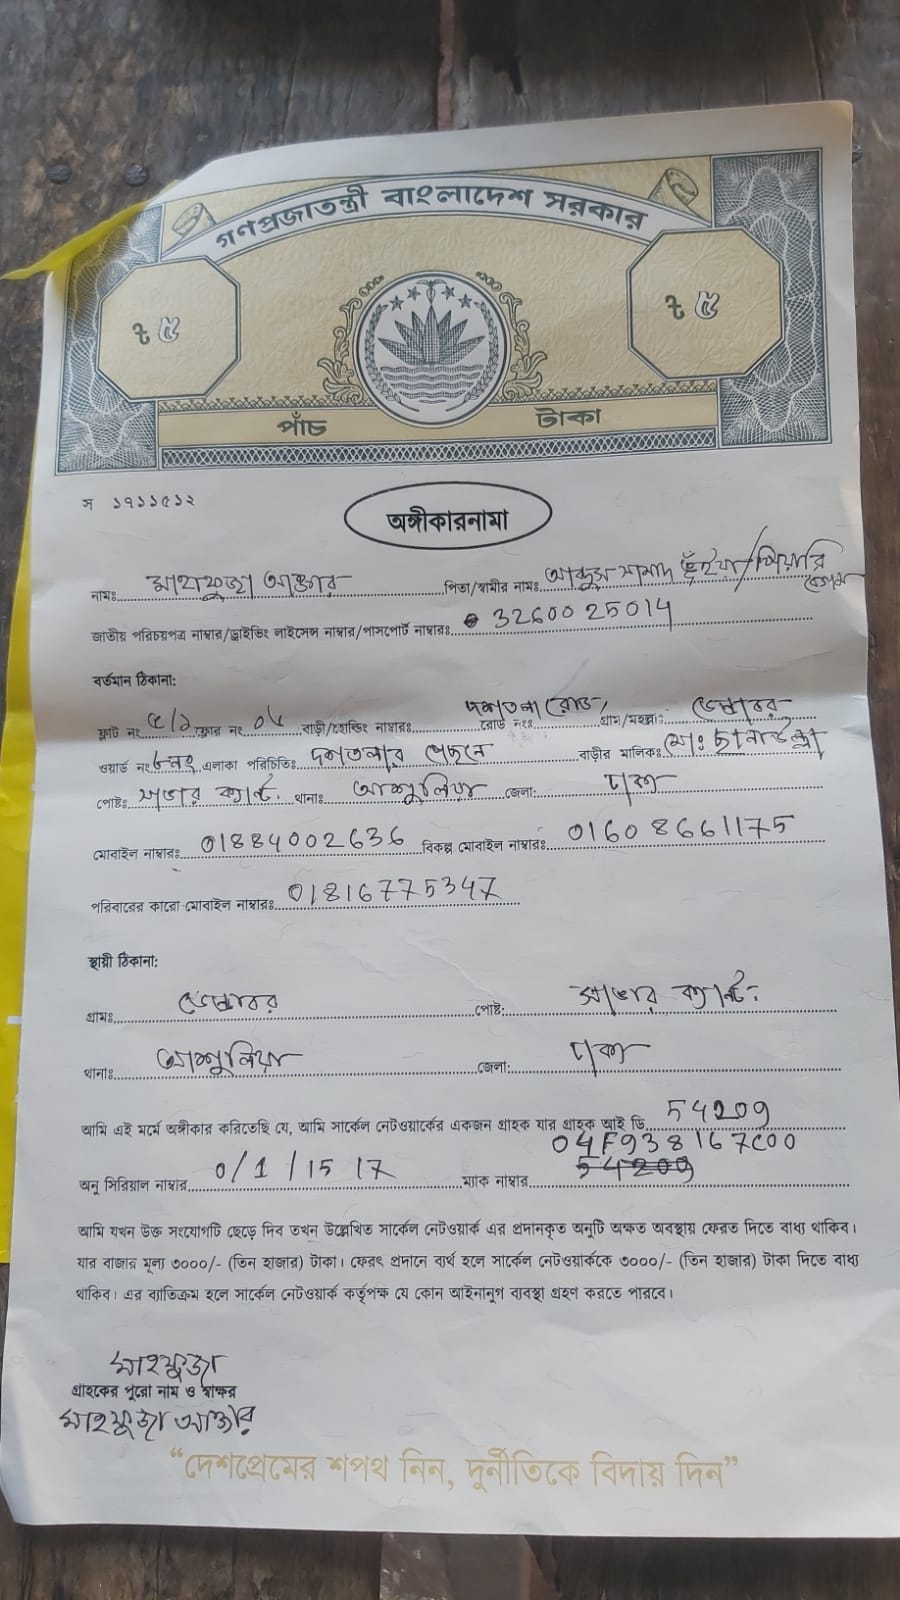 গণপ্রজাতন্ত্রী বাংলাদেশ সরকার
৳ ৫
৳ ৫
পাঁচ টাকা
স ১৭১১৫১২
অঙ্গীকারনামা
নামঃ মাহফুজা আক্তার পিতা/স্বামীর নামঃ আব্দুস সামাদ ভূঁইয়া/পিয়ারি বেগম
জাতীয় পরিচয়পত্র নাম্বার/ড্রাইভিং লাইসেন্স নাম্বার/পাসপোর্ট নাম্বারঃ 3260025014
বর্তমান ঠিকানা:
ফ্লাট নং ৫/১ ফ্লোর নং ০৫ বাড়ী/হোল্ডিং নাম্বারঃ দশতলা রোড, রোড নংঃ গ্রাম/মহল্লা: ডেন্ডাবর
ওয়ার্ড নং ৮নং এলাকা পরিচিতি: দশতলার পেছনে বাড়ীর মালিকঃ মোঃ ছানাউল্লা
পোষ্টঃ সাভার ক্যান্ট. থানাঃ আশুলিয়া জেলা: ঢাকা
মোবাইল নাম্বারঃ 01884002636 বিকল্প মোবাইল নাম্বারঃ 01608661175
পরিবারের কারো মোবাইল নাম্বারঃ 01816775347
স্থায়ী ঠিকানা:
গ্রামঃ ডেন্ডাবর পোষ্ট: সাভার ক্যান্ট:
থানাঃ আশুলিয়া জেলা: ঢাকা
আমি এই মর্মে অঙ্গীকার করিতেছি যে, আমি সার্কেল নেটওয়ার্কের একজন গ্রাহক যার গ্রাহক আই ডি 54209
অনু সিরিয়াল নাম্বার 0/1/15 17 ম্যাক নাম্বার 04F938167C00
আমি যখন উক্ত সংযোগটি ছেড়ে দিব তখন উল্লেখিত সার্কেল নেটওয়ার্ক এর প্রদানকৃত অনুটি অক্ষত অবস্থায় ফেরত দিতে বাধ্য থাকিব।
যার বাজার মূল্য ৩০০০/- (তিন হাজার) টাকা। ফেরৎ প্রদানে ব্যর্থ হলে সার্কেল নেটওয়ার্ককে ৩০০০/- (তিন হাজার) টাকা দিতে বাধ্য
থাকিব। এর ব্যতিক্রম হলে সার্কেল নেটওয়ার্ক কর্তৃপক্ষ যে কোন আইনানুগ ব্যবস্থা গ্রহণ করতে পারবে।
মাহফুজা
গ্রাহকের পুরো নাম ও স্বাক্ষর
মাহফুজা আক্তার
“দেশপ্রেমের শপথ নিন, দুর্নীতিকে বিদায় দিন”